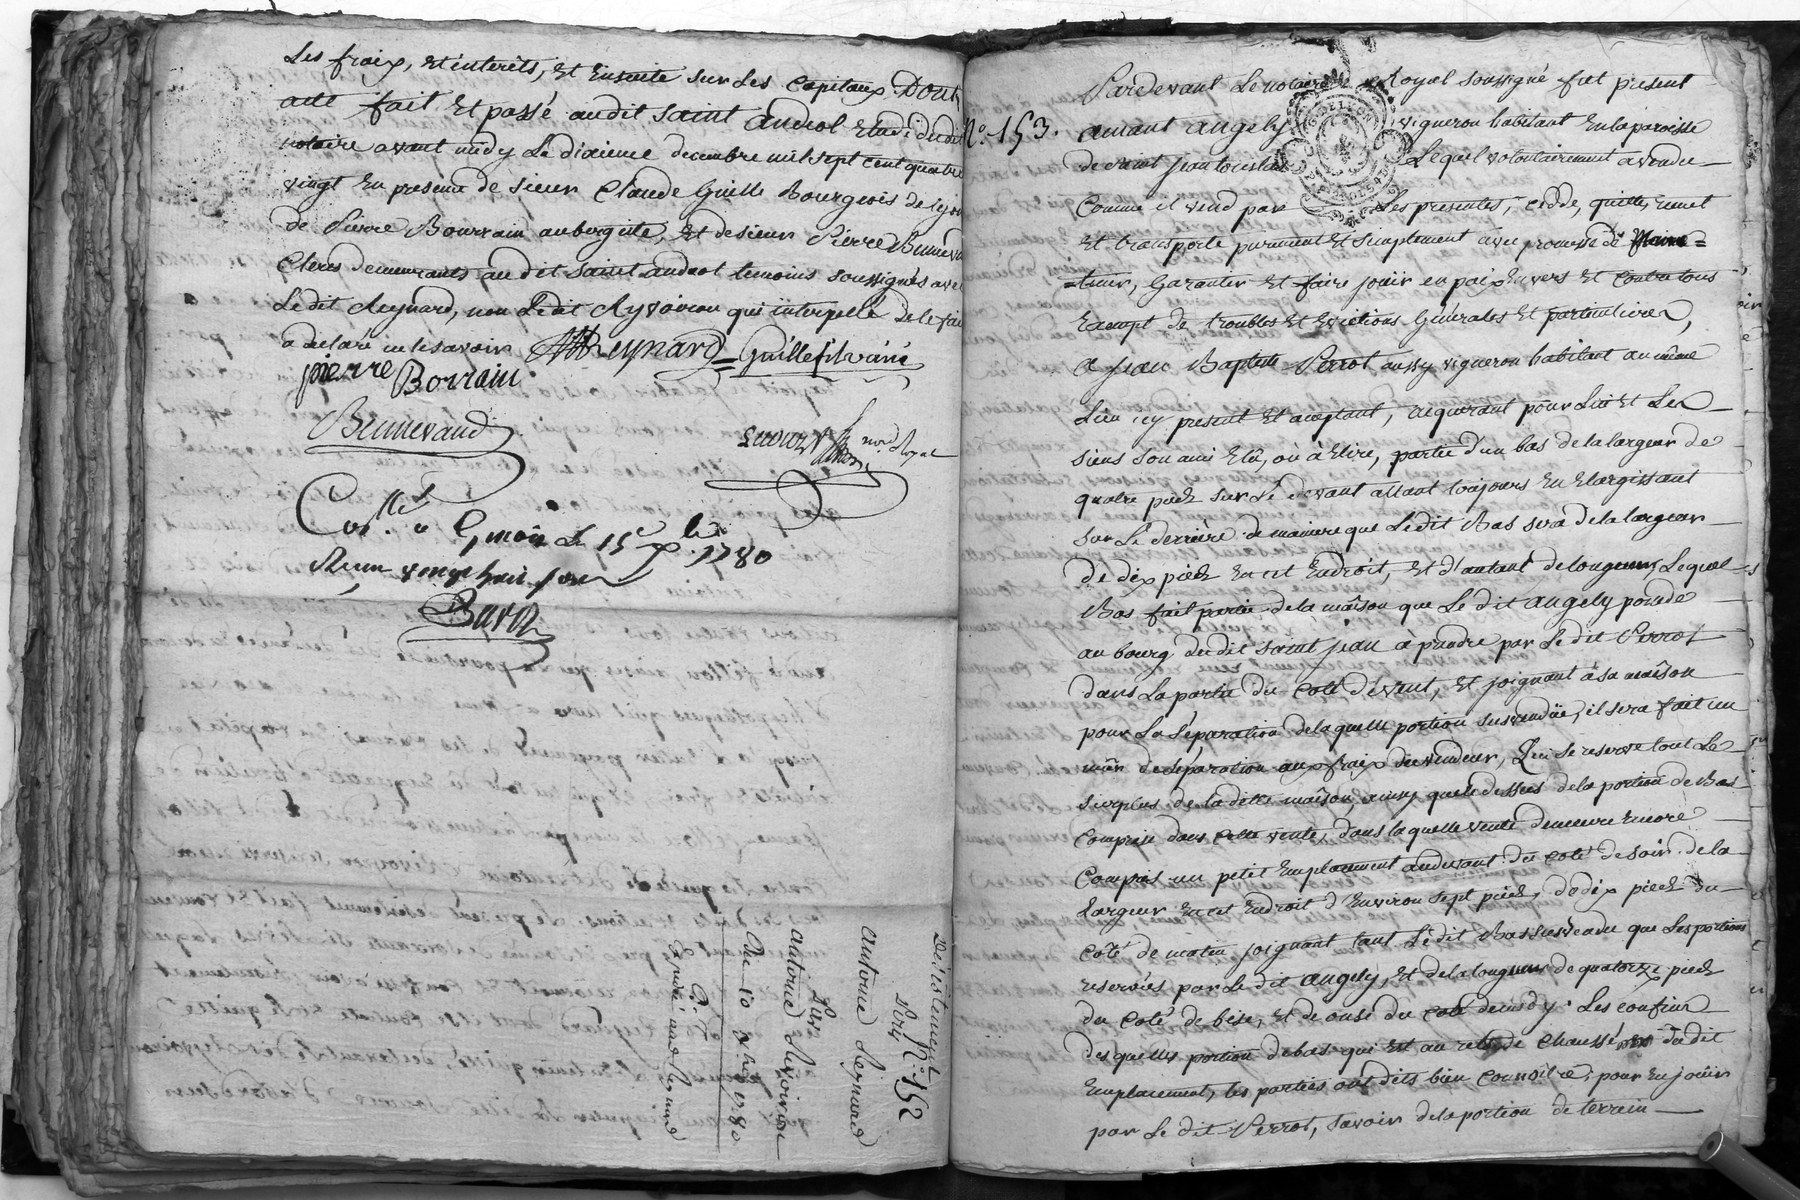 Les fraix, et interets, et Ensuite sur Les Capitaux Dont
acte fait Et passé audit saint andeol Etude dudit
notaire avant midy Le dixieme decembre mil sept cent quatre
vingt En presence de sieur Claude Guille Bourgeois de lyon
de Pierre Bourrain aubergiste, et de sieur Pierre Bennevaud
Clercs demeurants au dit saint andeol temoins soussignés avec
Le dit Reynard, non Ledit Ryvoiron qui interpellé de le faire
a declaré ne le savoir
Reynard Guillesilvain
pierre Borrain
Bennevaud
no.re Royal
Con.llé a le 15e Xbre 1780
Reçu vingt huit sols
Desistement
N.o 152
Antoine Reynard
Sur
Antoine Rivoiron
Du 10 Xbre 1780
N.o 153.
Pardevant Le notaire Royal soussigné fut present
amant angely vigneron habitant En la paroisse
de saint jean Lequel volontairement a vendu
Comme il vend par Les presentes, cedde, quitte, remet
Et transporte purement Et simplement avec promesse de main=
=tenir, Garantir Et faire jouir en paix Envers Et contre tous
Exempt de troubles Et Evictions Générales Et particulieres,
a jean Baptiste Perrot aussy vigneron habitant au même
Lieu icy present Et acceptant, acquerant pour Lui Et Les
siens son ami Elû, où à Elire, partie d'un bas de la largeur de
quatre pieds sur Le devant allant toujours En Elargissant
sur Le derrière de maniere que Ledit Bas sera de la largeur
De dix pieds En cet Endroit, Et d'autant de longueur, Lequel
Bas fait partie de la maison que Le dit angely possede
au bourg dudit saint jean a prendre par Le dit Perrot
dans La partie du Coté d'évént, Et joignant à sa maison
pour La séparation de laquelle portion susvendüe, il sera fait un
mûr de séparation aux fraix du vendeur, Qui se reserve tout Le
surplus de la ditte maison ainsy que le dessus de la portion de Bas
Comprise dans cette vente, dans laquelle vente demeure Encore
Compris un petit Emplacement audevant du coté de soir de la
Largeur En cet Endroit d'Environ sept pieds, de dix pieds du
coté de matin joignant tant Ledit Bas susvendu que Les portions
reservées par Le dit angely, Et de la longueur de quatorze pieds
du coté de bise, Et de onse du coté de midy. Les confins
desquelles portion de bas qui Est au rets de Chaussé Et dudit
Emplacement, les parties ont dits bien connoitre, pour En jouir
par Le dit Perrot, savoir de la portion de terrain